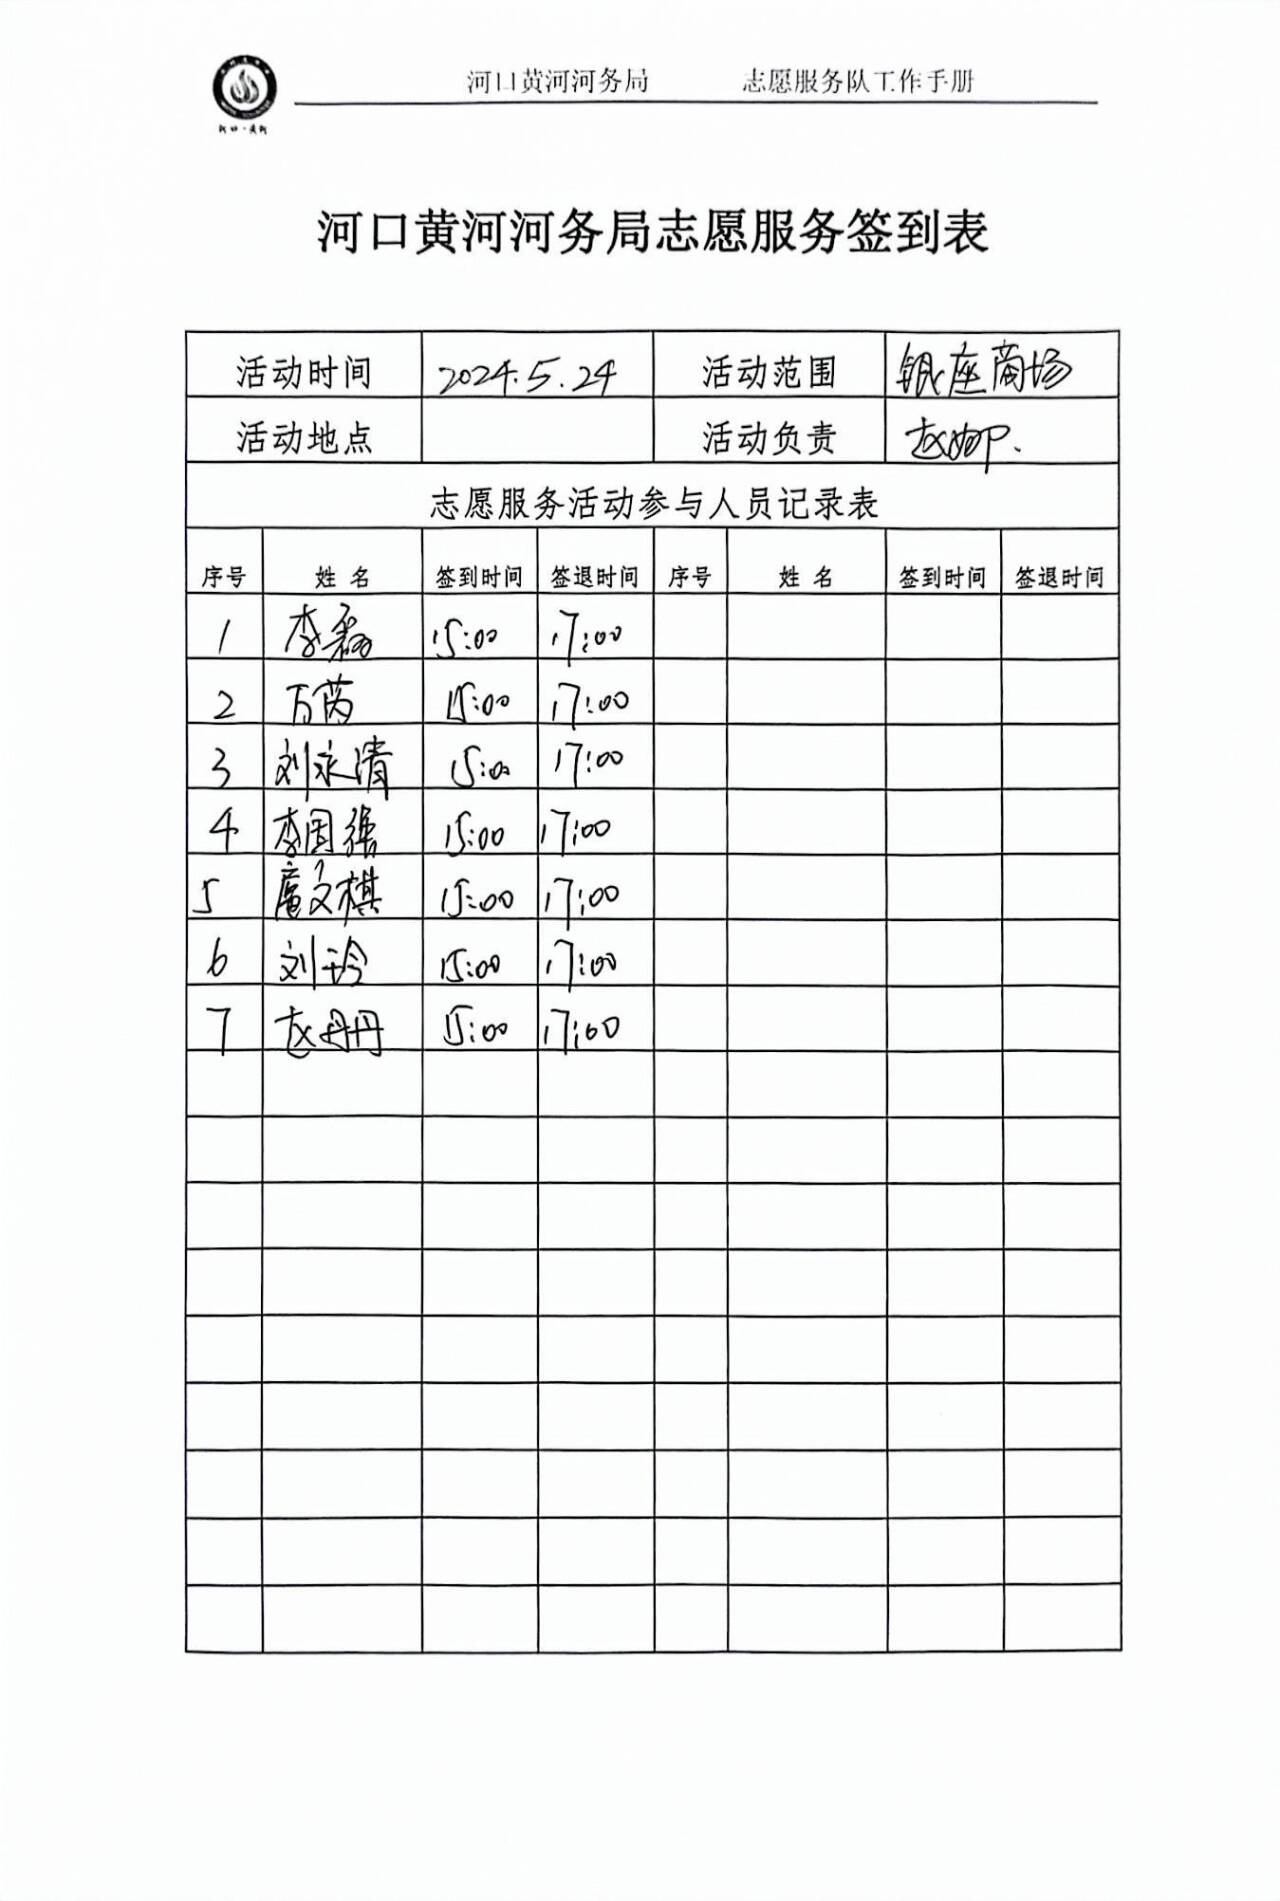 河口黄河河务局 志愿服务队工作手册
河口·黄河
河口黄河河务局志愿服务签到表
活动时间 2024.5.24 活动范围 银座商场
活动地点 活动负责 赵娜.
志愿服务活动参与人员记录表
序号 姓名 签到时间 签退时间 序号 姓名 签到时间 签退时间
1 李磊 15:00 17:00
2 万芮 15:00 17:00
3 刘永清 15:00 17:00
4 李国强 15:00 17:00
5 庞文棋 15:00 17:00
6 刘玲 15:00 17:00
7 赵丹丹 15:00 17:00